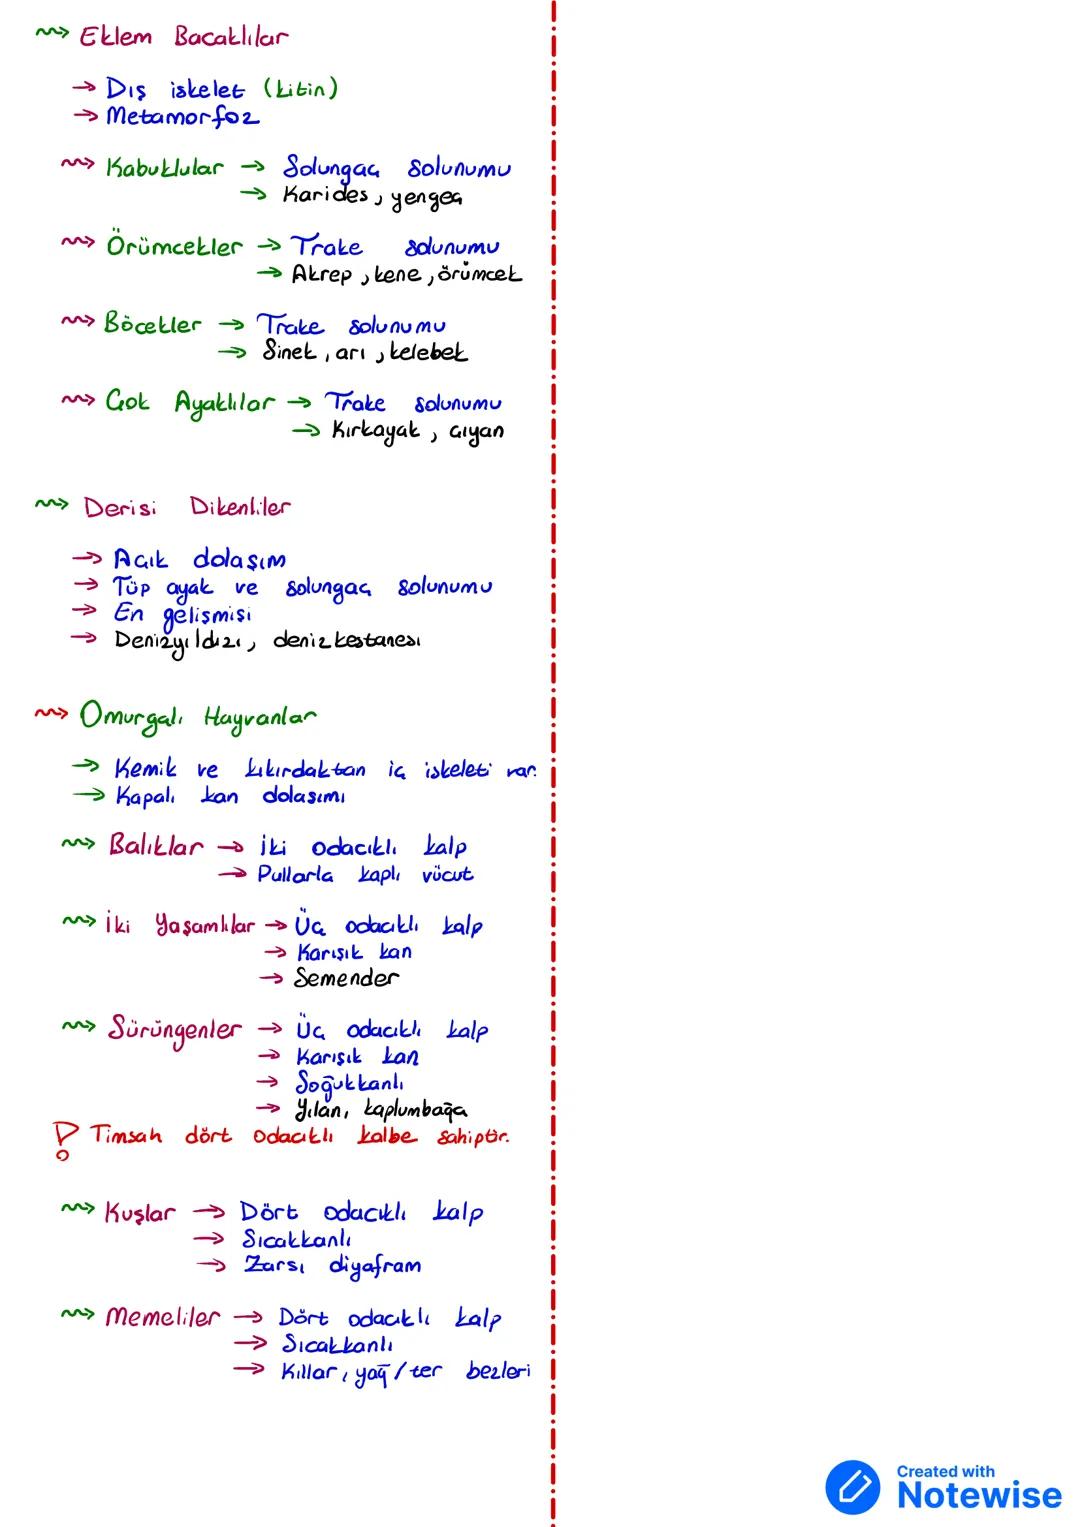 Eklem Bacaklılar
→ Dış iskelet (kitin)
→ Metamorfoz
Kabuklular → Solungaç solunumu
→ Karides, yengeç
Örümcekler → Trake solunumu
→ Akrep, kene, örümcek
Böcekler → Trake solunumu
→ Sinek, arı, kelebek
Çok Ayaklılar → Trake solunumu
→ Kırkayak, çıyan
Derisi Dikenliler
→ Açık dolaşım
→ Tüp ayak ve solungaç solunumu
→ En gelişmişi
→ Denizyıldızı, deniz kestanesi
Omurgalı Hayvanlar
→ Kemik ve kıkırdaktan iç iskeleti var.
→ Kapalı kan dolaşımı
Balıklar → İki odacıklı kalp
→ Pullarla kaplı vücut
İki Yaşamlılar → Üç odacıklı kalp
→ Karışık kan
→ Semender
Sürüngenler → Üç odacıklı kalp
→ Karışık kan
→ Soğukkanlı
→ Yılan, kaplumbağa
! Timsah dört odacıklı kalbe sahiptir.
Kuşlar → Dört odacıklı kalp
→ Sıcakkanlı
→ Zarsı diyafram
Memeliler → Dört odacıklı kalp
→ Sıcakkanlı
→ Kıllar, yağ/ter bezleri
Created with
Notewise